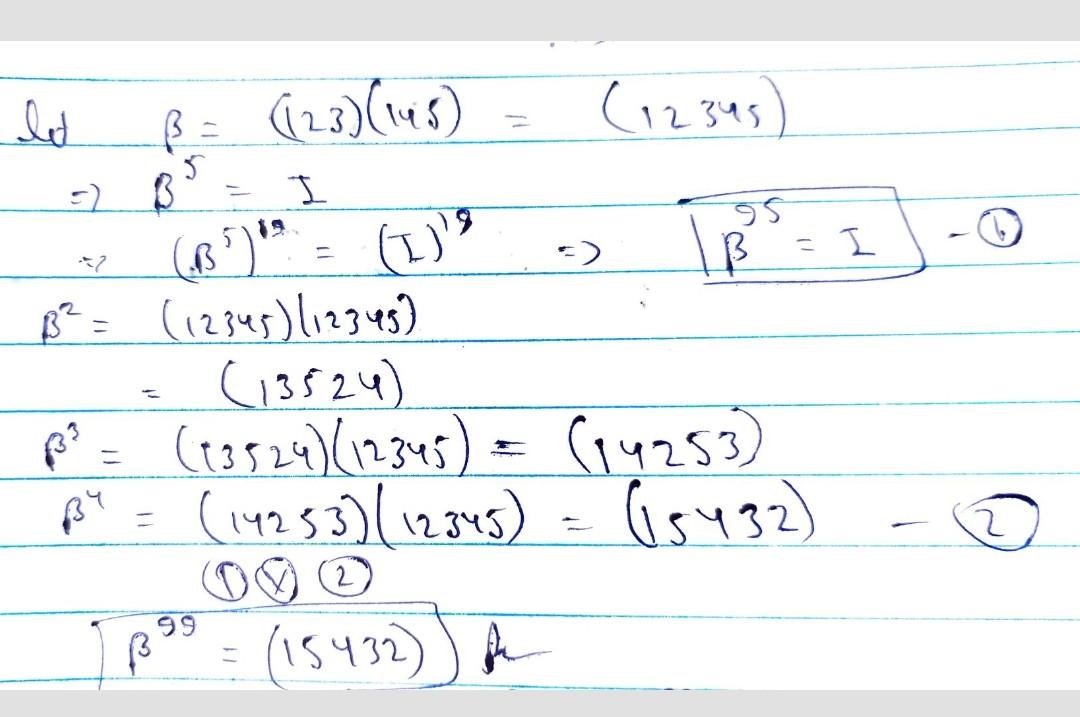 let β = (123)(145) = (12345)
=> β⁵ = I
=> (β⁵)¹⁹ = (I)¹⁹ => β⁹⁵ = I - ①
β² = (12345)(12345)
= (13524)
β³ = (13524)(12345) = (14253)
β⁴ = (14253)(12345) = (15432) - ②
① ⓧ ②
β⁹⁹ = (15432)